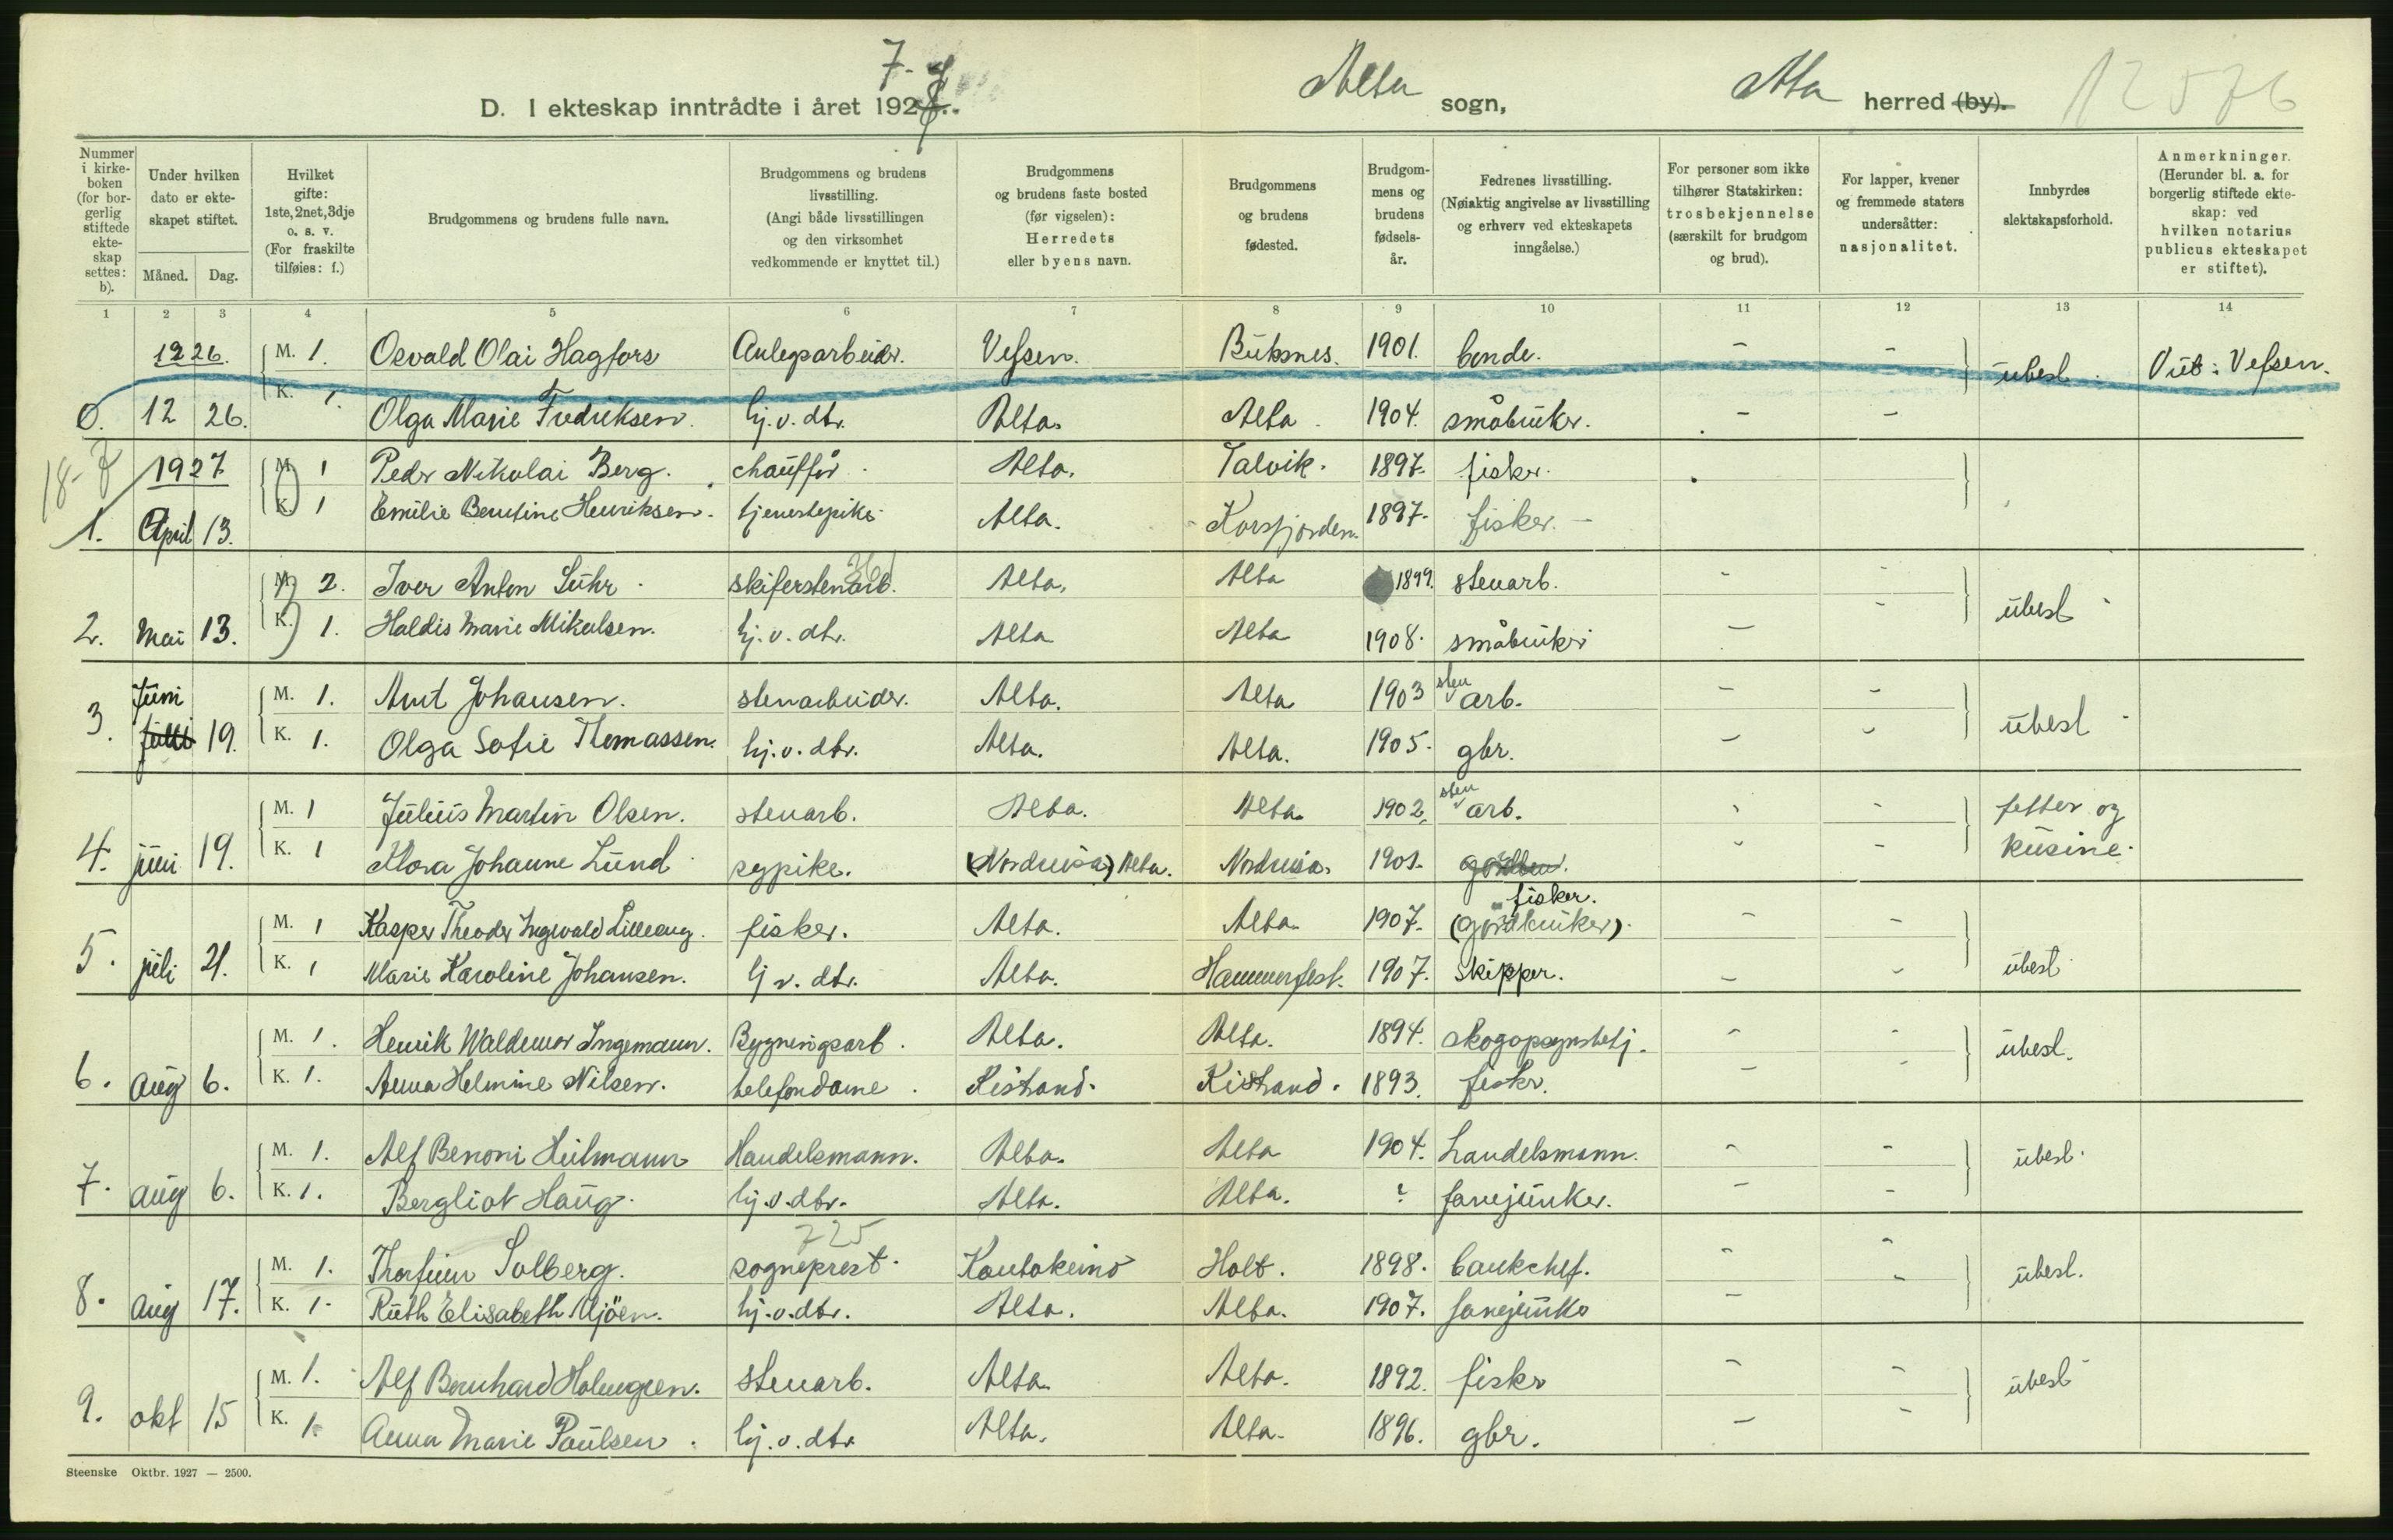 7-7
D. I ekteskap inntrådte i året 1927. Alta sogn, Alta herred (by). 12576
Nummer i kirkeboken (for borgerlig stiftede ekteskap settes: b).
Under hvilken dato er ekteskapet stiftet.
Måned. Dag.
Hvilket gifte: 1ste, 2net, 3dje o. s. v. (For fraskilte tilføies: f.)
Brudgommens og brudens fulle navn.
Brudgommens og brudens livsstilling. (Angi både livsstillingen og den virksomhet vedkommende er knyttet til.)
Brudgommens og brudens faste bosted (før vigselen): Herredets eller byens navn.
Brudgommens og brudens fødested.
Brudgommens og brudens fødselsår.
Fedrenes livsstilling. (Nøiaktig angivelse av livsstilling og erhverv ved ekteskapets inngåelse.)
For personer som ikke tilhører Statskirken: trosbekjennelse (særskilt for brudgom og brud).
For lapper, kvener og fremmede staters undersåtter: nasjonalitet.
Innbyrdes slektskapsforhold.
Anmerkninger. (Herunder bl. a. for borgerlig stiftede ekteskap: ved hvilken notarius publicus ekteskapet er stiftet).
1 2 3 4 5 6 7 8 9 10 11 12 13 14
1226. M. 1. Osvald Olai Hagfors Anlegsarbeider. Vefsen. Buksnes. 1901. bonde. - - ubesl. Vut: Vefsen.
0. 12 26. K. 1. Olga Marie Fredriksen. hj. v. dtr. Alta. Alta. 1904. småbruker. - -
18-7 1927 M. 1 Peder Nikolai Berg. chauffør. Alta. Talvik. 1897. fisker.
1. April 13. K. 1 Emilie Berntine Henriksen. tjenestepike Alta. Korsfjorden. 1897. fisker. -
M. 2. Iver Anton Suhr. skiferstenarb. Alta. Alta 1899. stenarb. - -
2. Mai 13. K. 1. Haldis Marie Mikalsen. hj. v. dtr. Alta Alta 1908. småbruker - - ubesl
Juni M. 1. Arnt Johansen. stenarbeider. Alta. Alta 1903 sten arb. - -
3. juli 19. K. 1. Olga Sofie Thomassen. hj. v. dtr. Alta. Alta. 1905. gbr. - - ubesl
M. 1 Julius Martin Olsen. stenarb. Alta. Alta. 1902. sten arb. - - fetter og
4. juni 19. K. 1 Klora Johanne Lund sypike. (Nordreisa) Alta. Nordreisa. 1901. - - kusine.
fisker.
M. 1 Kasper Theodor Ingvald Lilleeng. fisker. Alta. Alta. 1907. (gårdbruker). - -
5. juli 21. K. 1 Marie Karoline Johansen. hj v. dtr. Alta. Hammerfest. 1907. skipper. - - ubesl
M. 1. Henrik Waldemar Ingemann. Bygningsarb. Alta. Alta. 1894. skogopsynsbetj. - - ubesl.
6. aug 6. K. 1. Anna Helmine Nilsen. telefondame. Kistrand. Kistrand. 1893. fisker. - -
M. 1. Alf Benoni Heilmann Handelsmann. Alta. Alta 1904. handelsmann. - - ubesl.
7. aug 6. K. 1. Bergliot Haug. hj. v. dtr. Alta. Alta. ? fanejunker. - -
725
M. 1. Thorfinn Solberg. sogneprest. Kautokeino Holt. 1898. bankchef. - - ubesl.
8. aug 17. K. 1. Ruth Elisabeth Mjöen. hj. v. dtr. Alta. Alta. 1907. fanejunker - -
M. 1. Alf Bernhard Holmgren. stenarb. Alta. Alta. 1892. fisker - - ubesl
9. okt 15 K. 1. Anna Marie Paulsen. hj. v. dtr Alta. Alta. 1896. gbr. - -
Steenske Oktbr. 1927 — 2500.